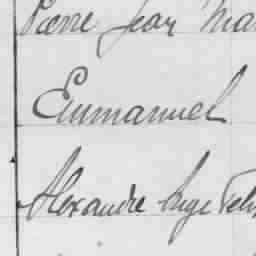 Pierre Jean Ma
Emmanuel
Alexandre Ange Feli